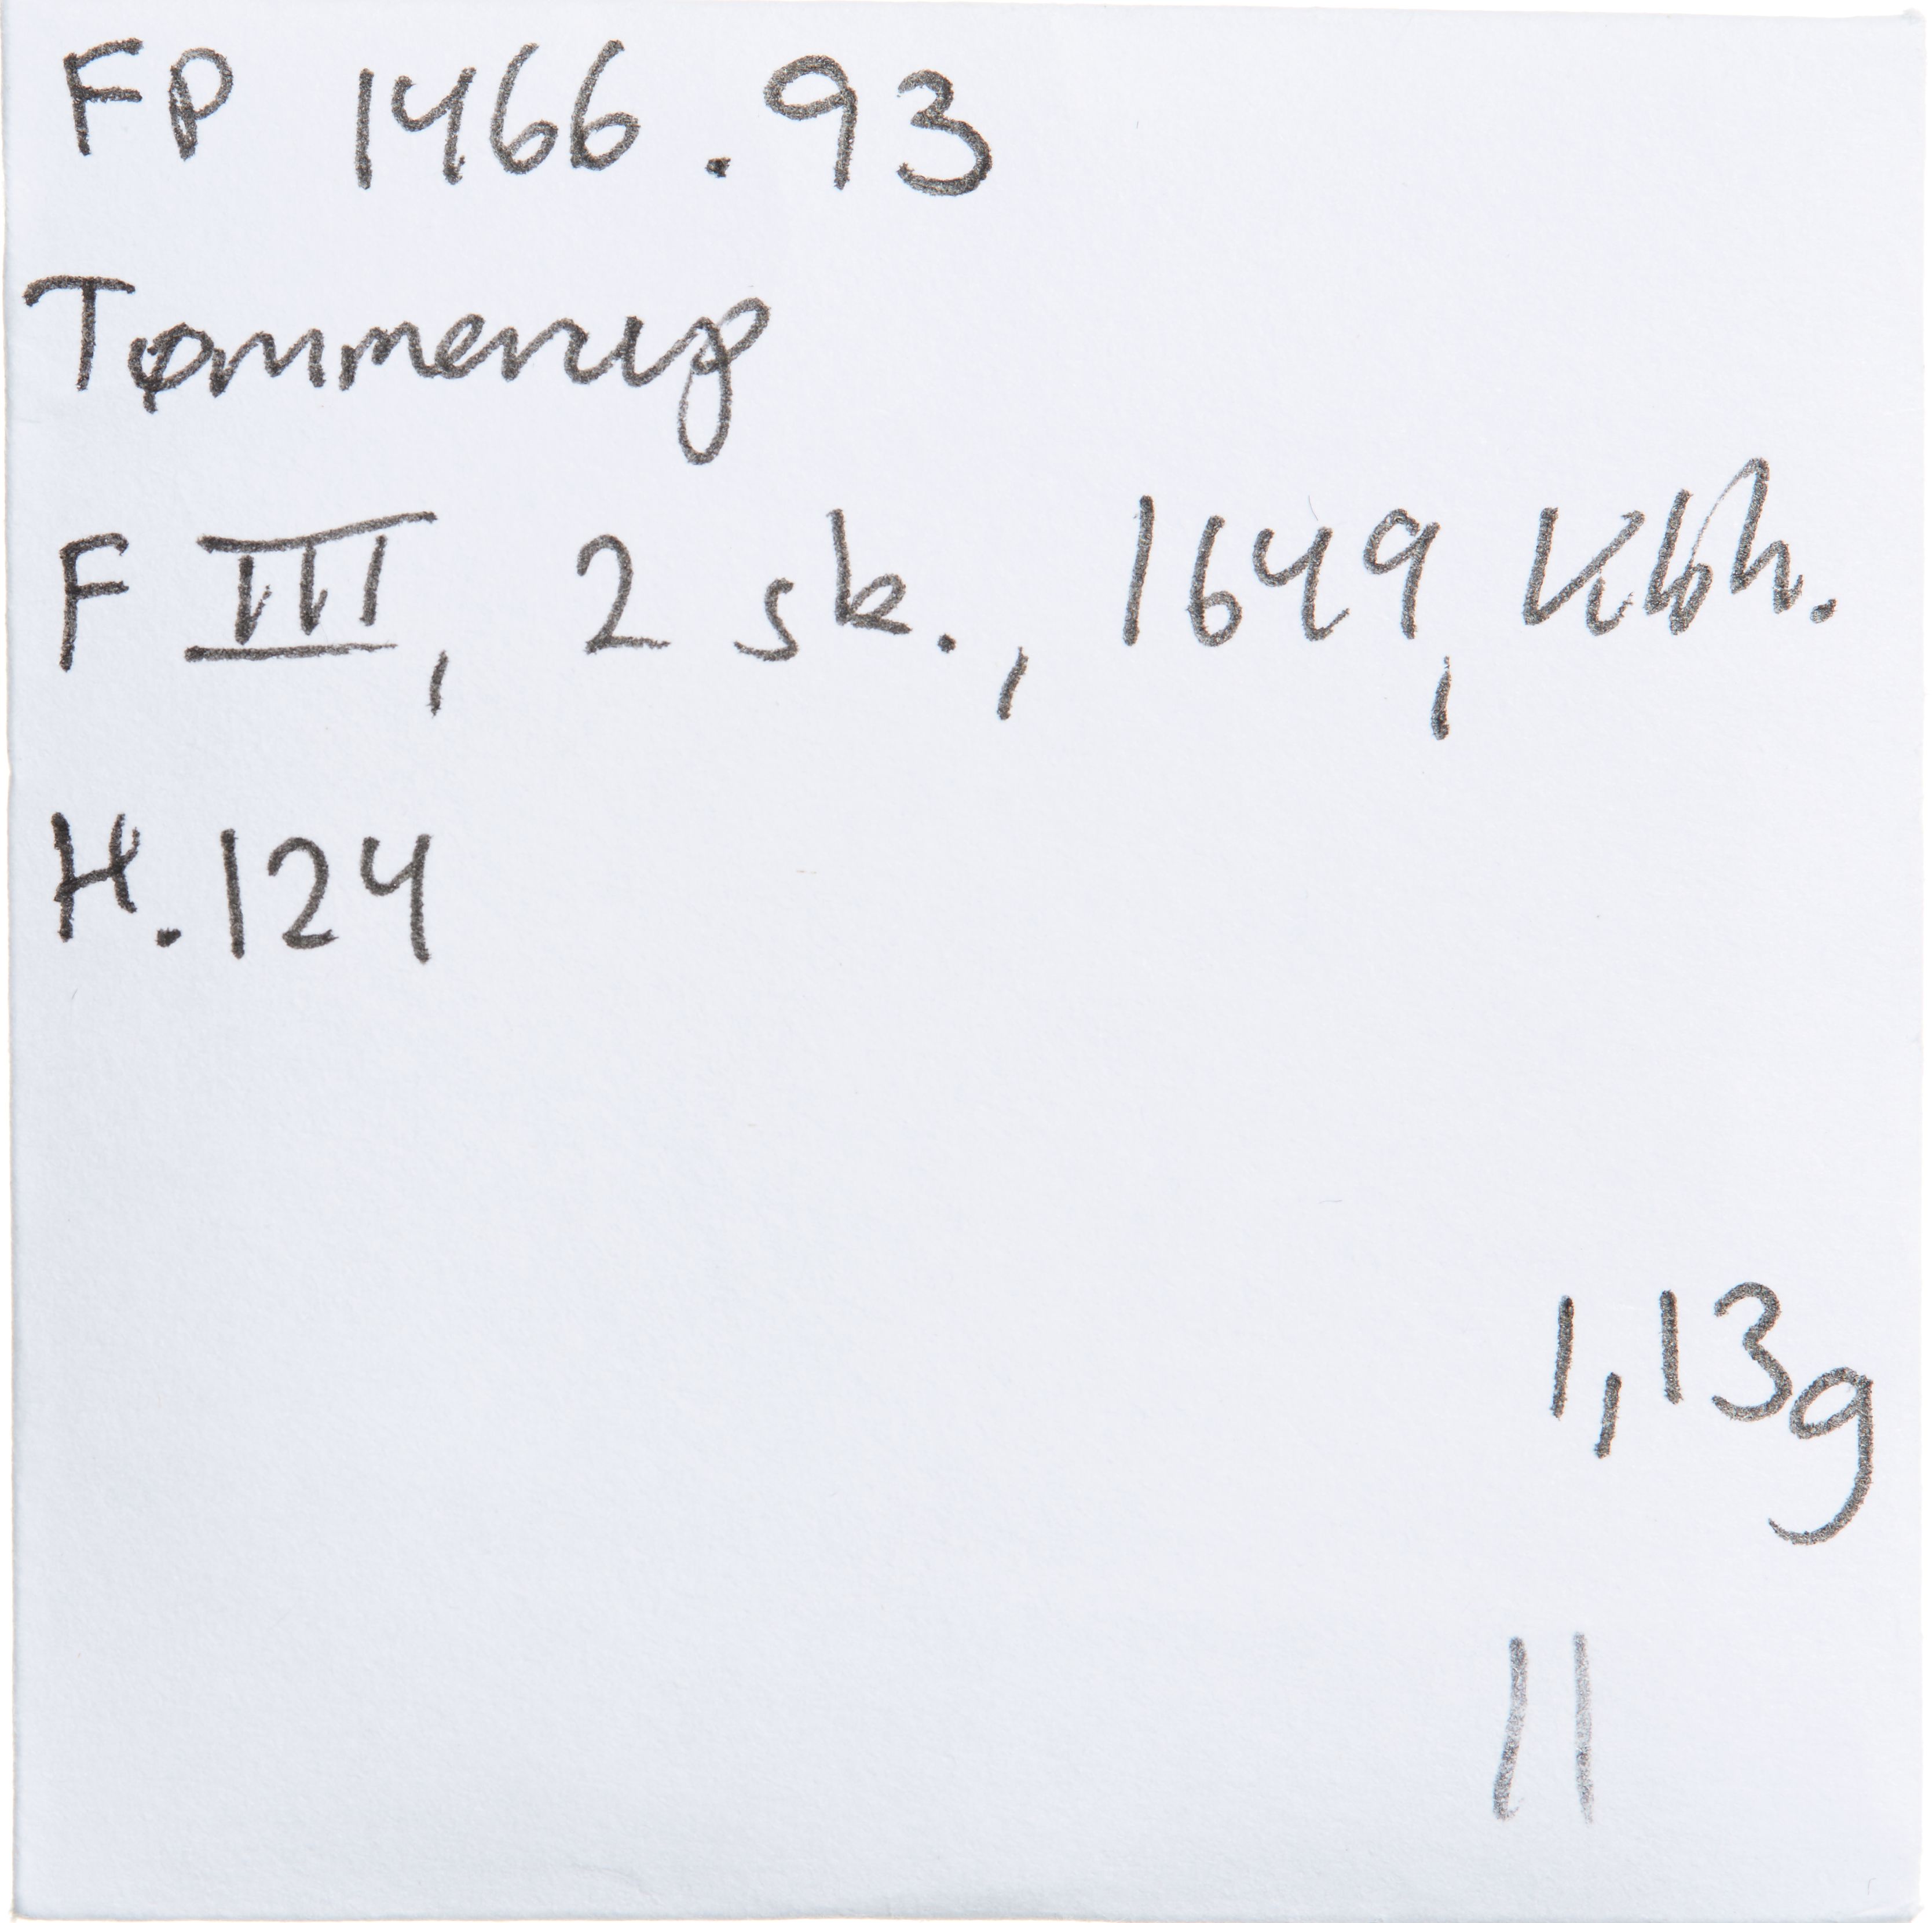 FP 1466.93
Tømmerup
F III, 2 sk., 1649, Kbh.
H.124
1,13g
11